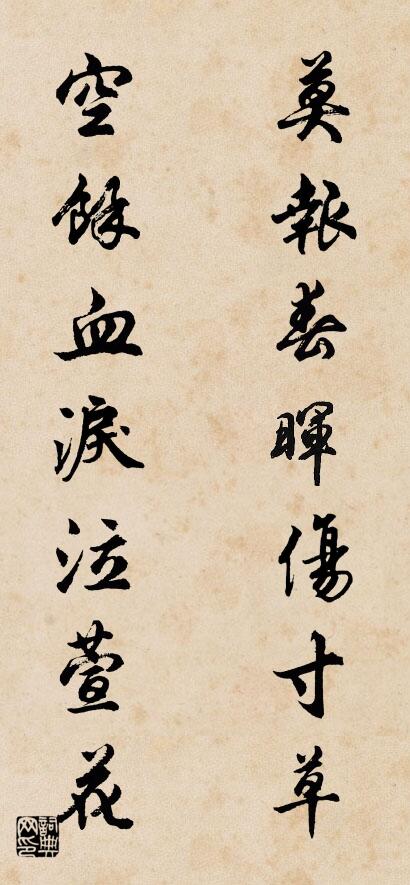 莫報春暉傷寸草
空餘血淚泣萱花
詞典网印